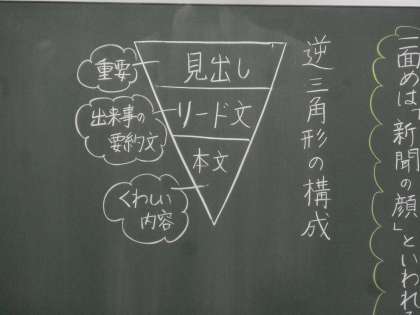 一面めは「新聞の顔」といわれ
逆三角形の構成
見出し
重要
リード文
出来事の
要約文
本文
くわしい
内容